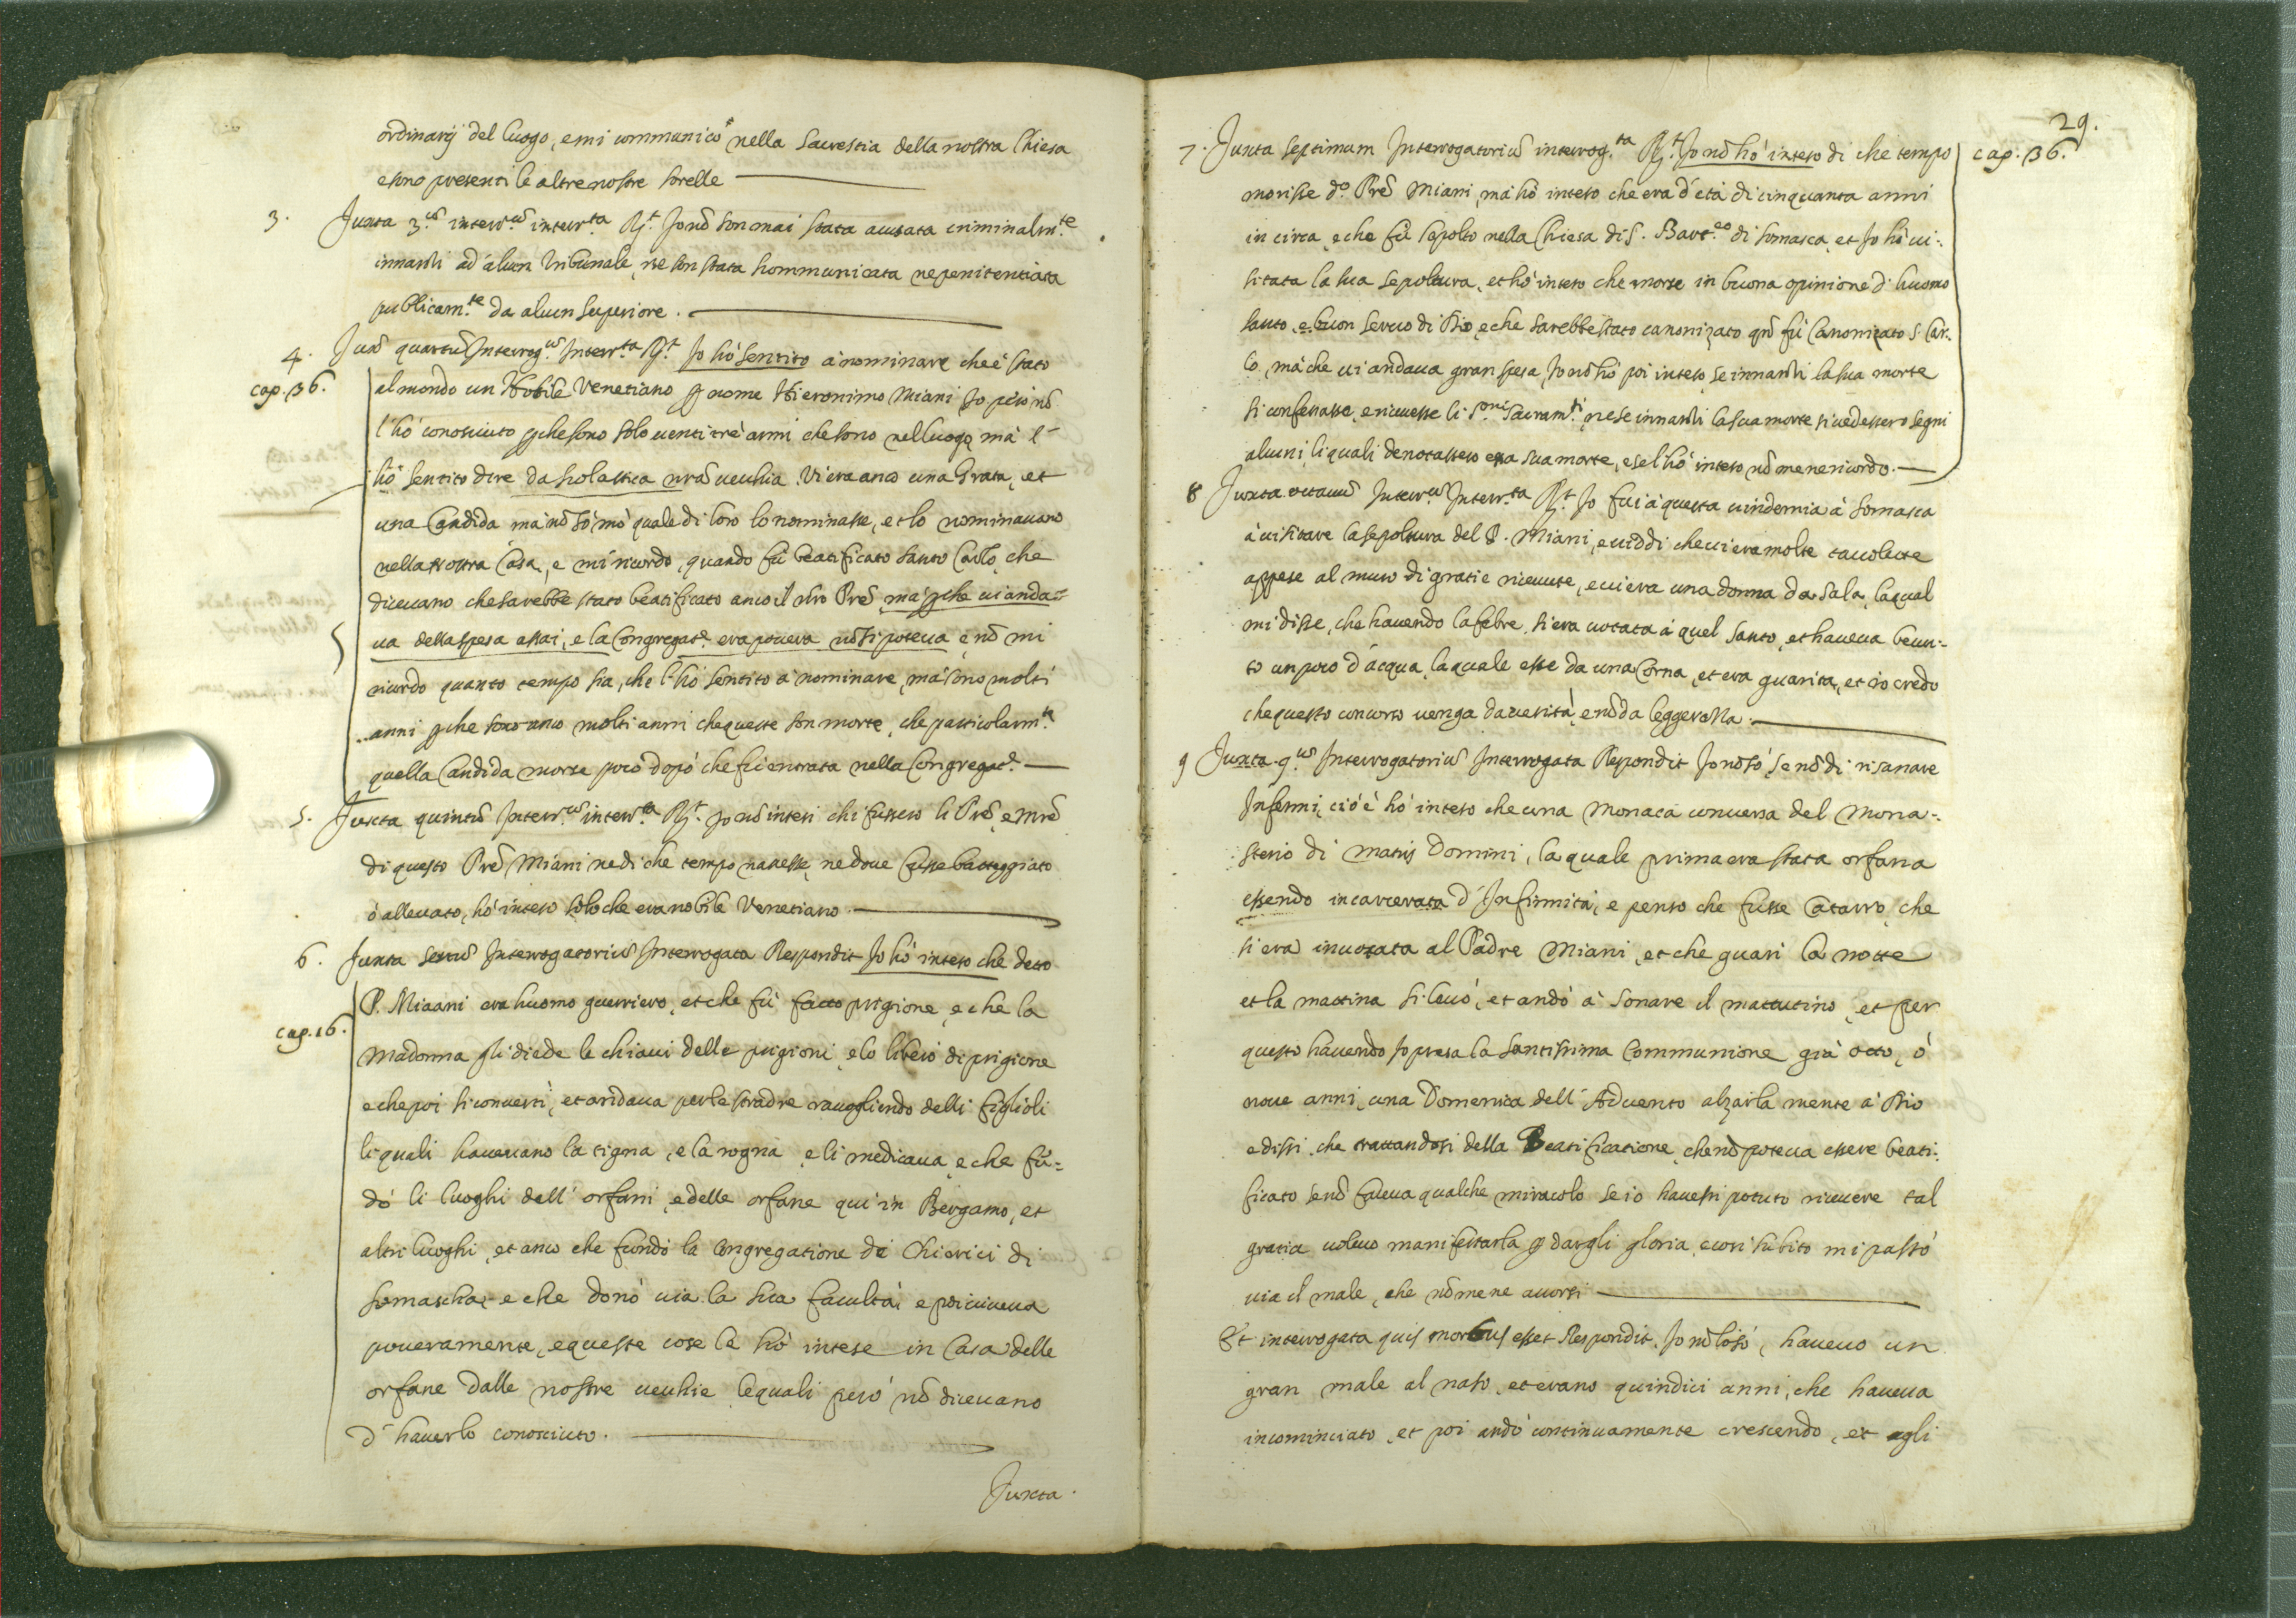 ordinarij del luogo, e mi communicò nella Sacrestia della nostra Chiesa
e sono presenti le altre nostre sorelle
3. Juxta 3.ũ interr.ũ interr.ta R.t Jo nõ son mai stata accusata criminalm.te
innanzi ad alcun Tribunale, ne son stata scommunicata ne penitentiata
publicam.te da alcun superiore.
4. Juxˢ quartũ Interrog.ũ Interr.ta R.t Jo hò sentito à nominare che è stato
cap. 36. al mondo un Nobile Venetiano p nome Hieronimo Miani Jo però nõ
l'hò conosciuto pche sono solo venti trè anni che sono nel luogo, mà l'
hò sentito dire da scolastica nrã vecchia. Vi era anco una Grata, et
una Candida mà nõ sò mò quale di loro lo nominasse, et lo nominavano
nella nostra Casa, e mi ricordo, quando fù beatificato santo Carlo, che
dicevano che sarebbe stato beatificato anco il nrõ Prẽ, mà pche vi anda=
va della spesa assai, e la Congregat.e era povera nõ si poteva, e nõ mi
ricordo quanto tempo sia, che l'hò sentito à nominare, mà sono molti
anni pche sono anco molti anni che queste son morte, che particolarm.te
quella Candida morse poco dopò che fui entrata nella Congregat.e
5. Juxta quintũ Interr.ũ interr.ta R.t Jo nõ intesi chi fussero li Prẽ, e Mrẽ
di questo Prẽ Miani ne di che tempo nascesse, ne dove fusse batteggiato
ò allevato, hò inteso solo che era nobile Venetiano.
6. Juxta sextũ Interrogatoriũ Interrogata Respondit Jo hò inteso che detto
P. Miaani era huomo guerriero, et che fù fatto prigione, e che la
cap. 16. Madonna gli diede le chiavi delle prigioni, e lo liberò di prigione
e che poi si convertì, et andava per le stradre raccogliendo delli figlioli
li quali havevano la tigna, e la rogna, e li medicava, e che fũ=
dò li luoghi dell' orfani, e delle orfane qui in Bergamo, et
altri luoghi, et anco che fundò la Congregatione de Chierici di
Somascha, e che donò via la sua facultà, e poi viveva
poveramente, e queste cose le hò intese in Casa delle
orfane dalle nostre vecchie, le quali però nõ dicevano
d' haverlo conosciuto.
Juxta.
29.
7. Juxta septimum Interrogatoriũ interrog.ta R.t Jo nõ hò inteso di che tempo
cap. 36.
morisse d.o Prẽ Miani, mà hò inteso che era d'età di cinquanta anni
in circa, e che fù sepolto nella Chiesa di S. Bart.eo di Somasca, et Jo hò vi=
sitata la sua sepoltura, et hò inteso che morse in buona opinione d' huomo
santo, e buon servo di Dio, e che sarebbe stato canonizato qñ fù Canonizato S. Car=
lo, mà che vi andava gran spesa, Jo nõ hò poi inteso, se innanzi la sua morte
si confessasse, e ricevesse li S.mi Sacram.ti, ne se innanzi la sua morte si vedessero segni
alcuni, li quali denotassero essa sua morte, e se l'hò inteso nõ me ne ricordo.
8 Juxta octavũ Interr.ũ Interr.ta R.t Jo fui à questa vindemia à Somasca
à visitare la sepoltura del P. Miani, e viddi che vi era molte tavolette
appese al muro di gratie ricevute, e vi era una donna da Sala, la qual
mi disse, che havendo la febre, si era votata à quel santo, et haveva bevu=
to un poco d'acqua, la quale esse da una Corna, et era guarita, et io credo
che questo concorso venga da verità, e nõ da leggerezza.
9 Juxta 9.ũ Interrogatoriũ Interrogata Respondit Jo nõ sò, se nõ di risanare
Infermi, ciò è hò inteso che una Monaca conversa del Mona=
sterio di Matris Domini, la quale prima era stata orfana
essendo incarcerata d' Infirmità, e penso che fusse Catarro, che
si era invotata al Padre Miani, et che guari la notte
et la mattina si levò, et andò à sonare il mattutino, et per
questo havendo Jo presa la Santissima Communione già otto, ò
nove anni, una Domenica dell' Advento alzai la mente à Dio
e dissi, che trattandosi della Beatificatione, che nõ poteva essere beati=
ficato se nõ faceva qualche miracolo se io havessi potuto ricevere tal
gratia volevo manifestarla p dargli gloria, e così subito mi passò
via il male, che nõ me ne accorsi
Et interrogata quis morbus esset Respondit. Jo nõ lo sò, havevo un
gran male al naso, et erano quindici anni, che haveva
incominciato, et poi andò continuamente crescendo, et agli